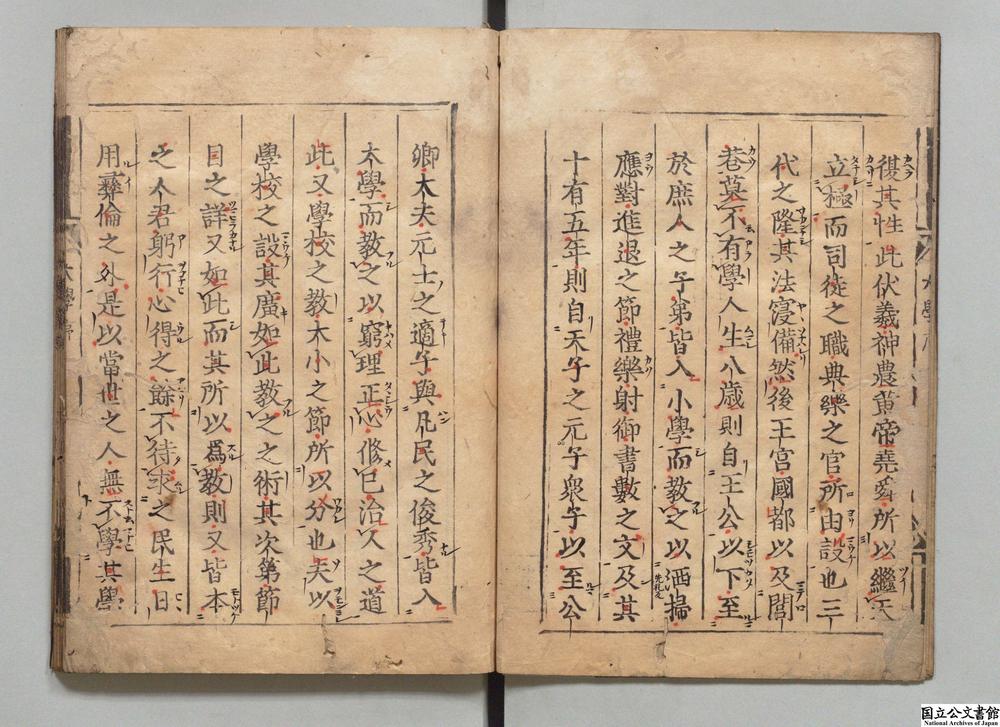 復其性此伏羲神農黃帝堯舜所以繼天
立極而司徒之職典樂之官所由設也三
代之隆其法寖備然後王宮國都以及閭
巷莫不有學人生八歲則自王公以下至
於庶人之子弟皆入小學而教之以洒掃
應對進退之節禮樂射御書數之文及其
十有五年則自天子之元子衆子以至公
卿大夫元士之適子與凡民之俊秀皆入
太學而教之以窮理正心修己治人之道
此又學校之教大小之節所以分也夫以
學校之設其廣如此教之之術其次第節
目之詳又如此而其所以爲教則又皆本
之人君躬行心得之餘不待求之民生日
用彝倫之外是以當世之人無不學其學
大學序
国立公文書館
National Archives of Japan